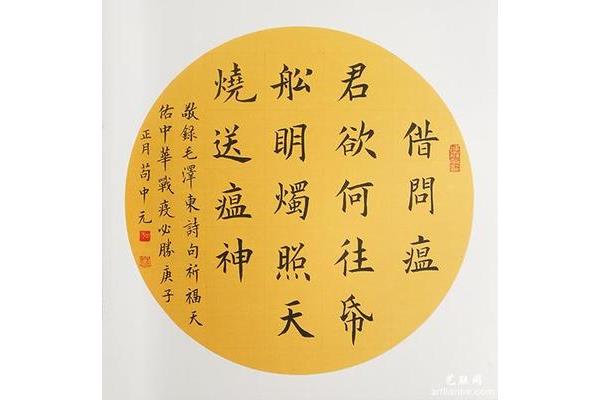 借問瘟
君欲何往帋
舩眀燭照天
燒送瘟神
敬錄毛澤東詩句祈福天
佑中華戰疫必勝庚子
正月苟中元
艺联网